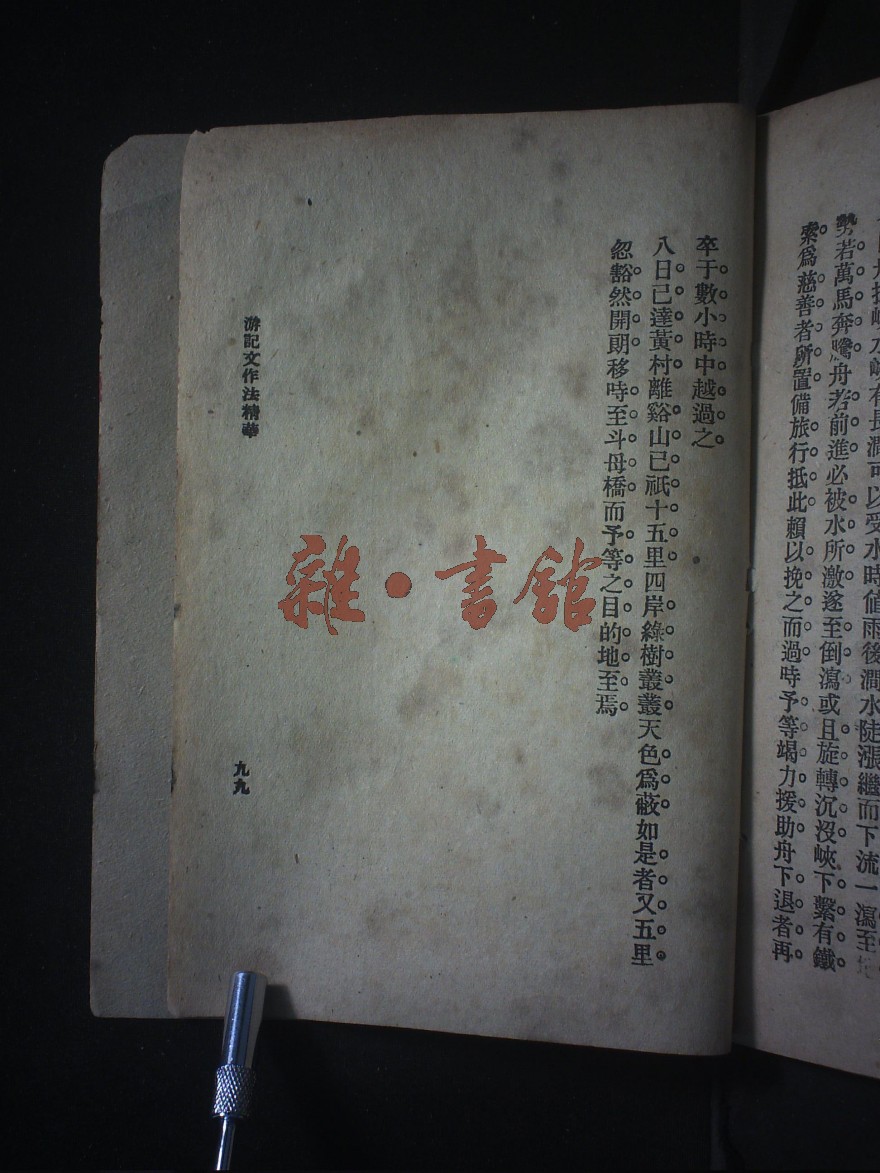 水峽有長澗可以受水時值雨後澗水陡漲繼而下流一瀉至
勢若萬馬奔騰舟若前進必被水所激遂至倒瀉或且旋轉沉沒峽下繫有鐵
索爲慈善者所置備旅行抵此賴以挽之而過時予等竭力援助舟下退者再
卒于數小時中越過之
八日已達黃村離谿山已祇十五里四岸綠樹叢叢天色爲蔽如是者又五里
忽豁然開朗移時至斗母橋而予等之目的地至焉
游記文作法精華
九九
雜·書館